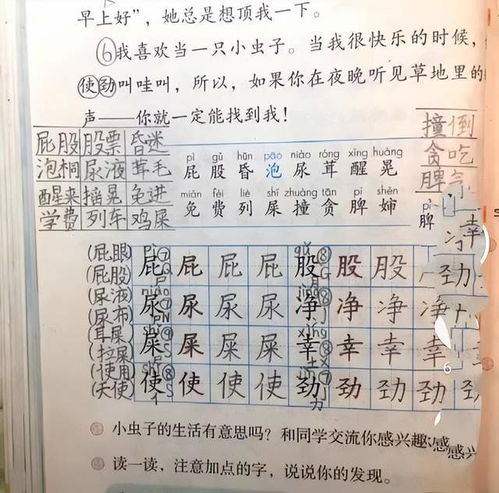 早上好”，她总是想顶我一下。
⑥我喜欢当一只小虫子。当我很快乐的时候，
使劲叫哇叫，所以，如果你在夜晚听见草地里的
声——你就一定能找到我！
屁股 股票 昏迷
泡桐 尿液 茸毛
醒来 摇晃 免进
学费 列车 鸡屎
撞倒
贪吃
脾气
pì gǔ hūn pāo niào róng xǐng huàng
屁 股 昏 泡 尿 茸 醒 晃
miǎn fèi liè shǐ zhuàng tān pí shěn
免 费 列 屎 撞 贪 脾 婶
pí
脾
(屁眼)
(屁股)
(尿液)
(尿布)
(耳屎)
(拉屎)
(使用)
(天使)
屁 屁 屁 屁 股 股 股
尿 尿 尿 尿 净 净 净 净
屎 屎 屎 屎 幸 幸 幸 幸
使 使 使 使 劲 劲 劲 劲
冷
幸
劲
6
小虫子的生活有意思吗？和同学交流你感兴趣
感
感兴
读一读，注意加点的字，说说你的发现。